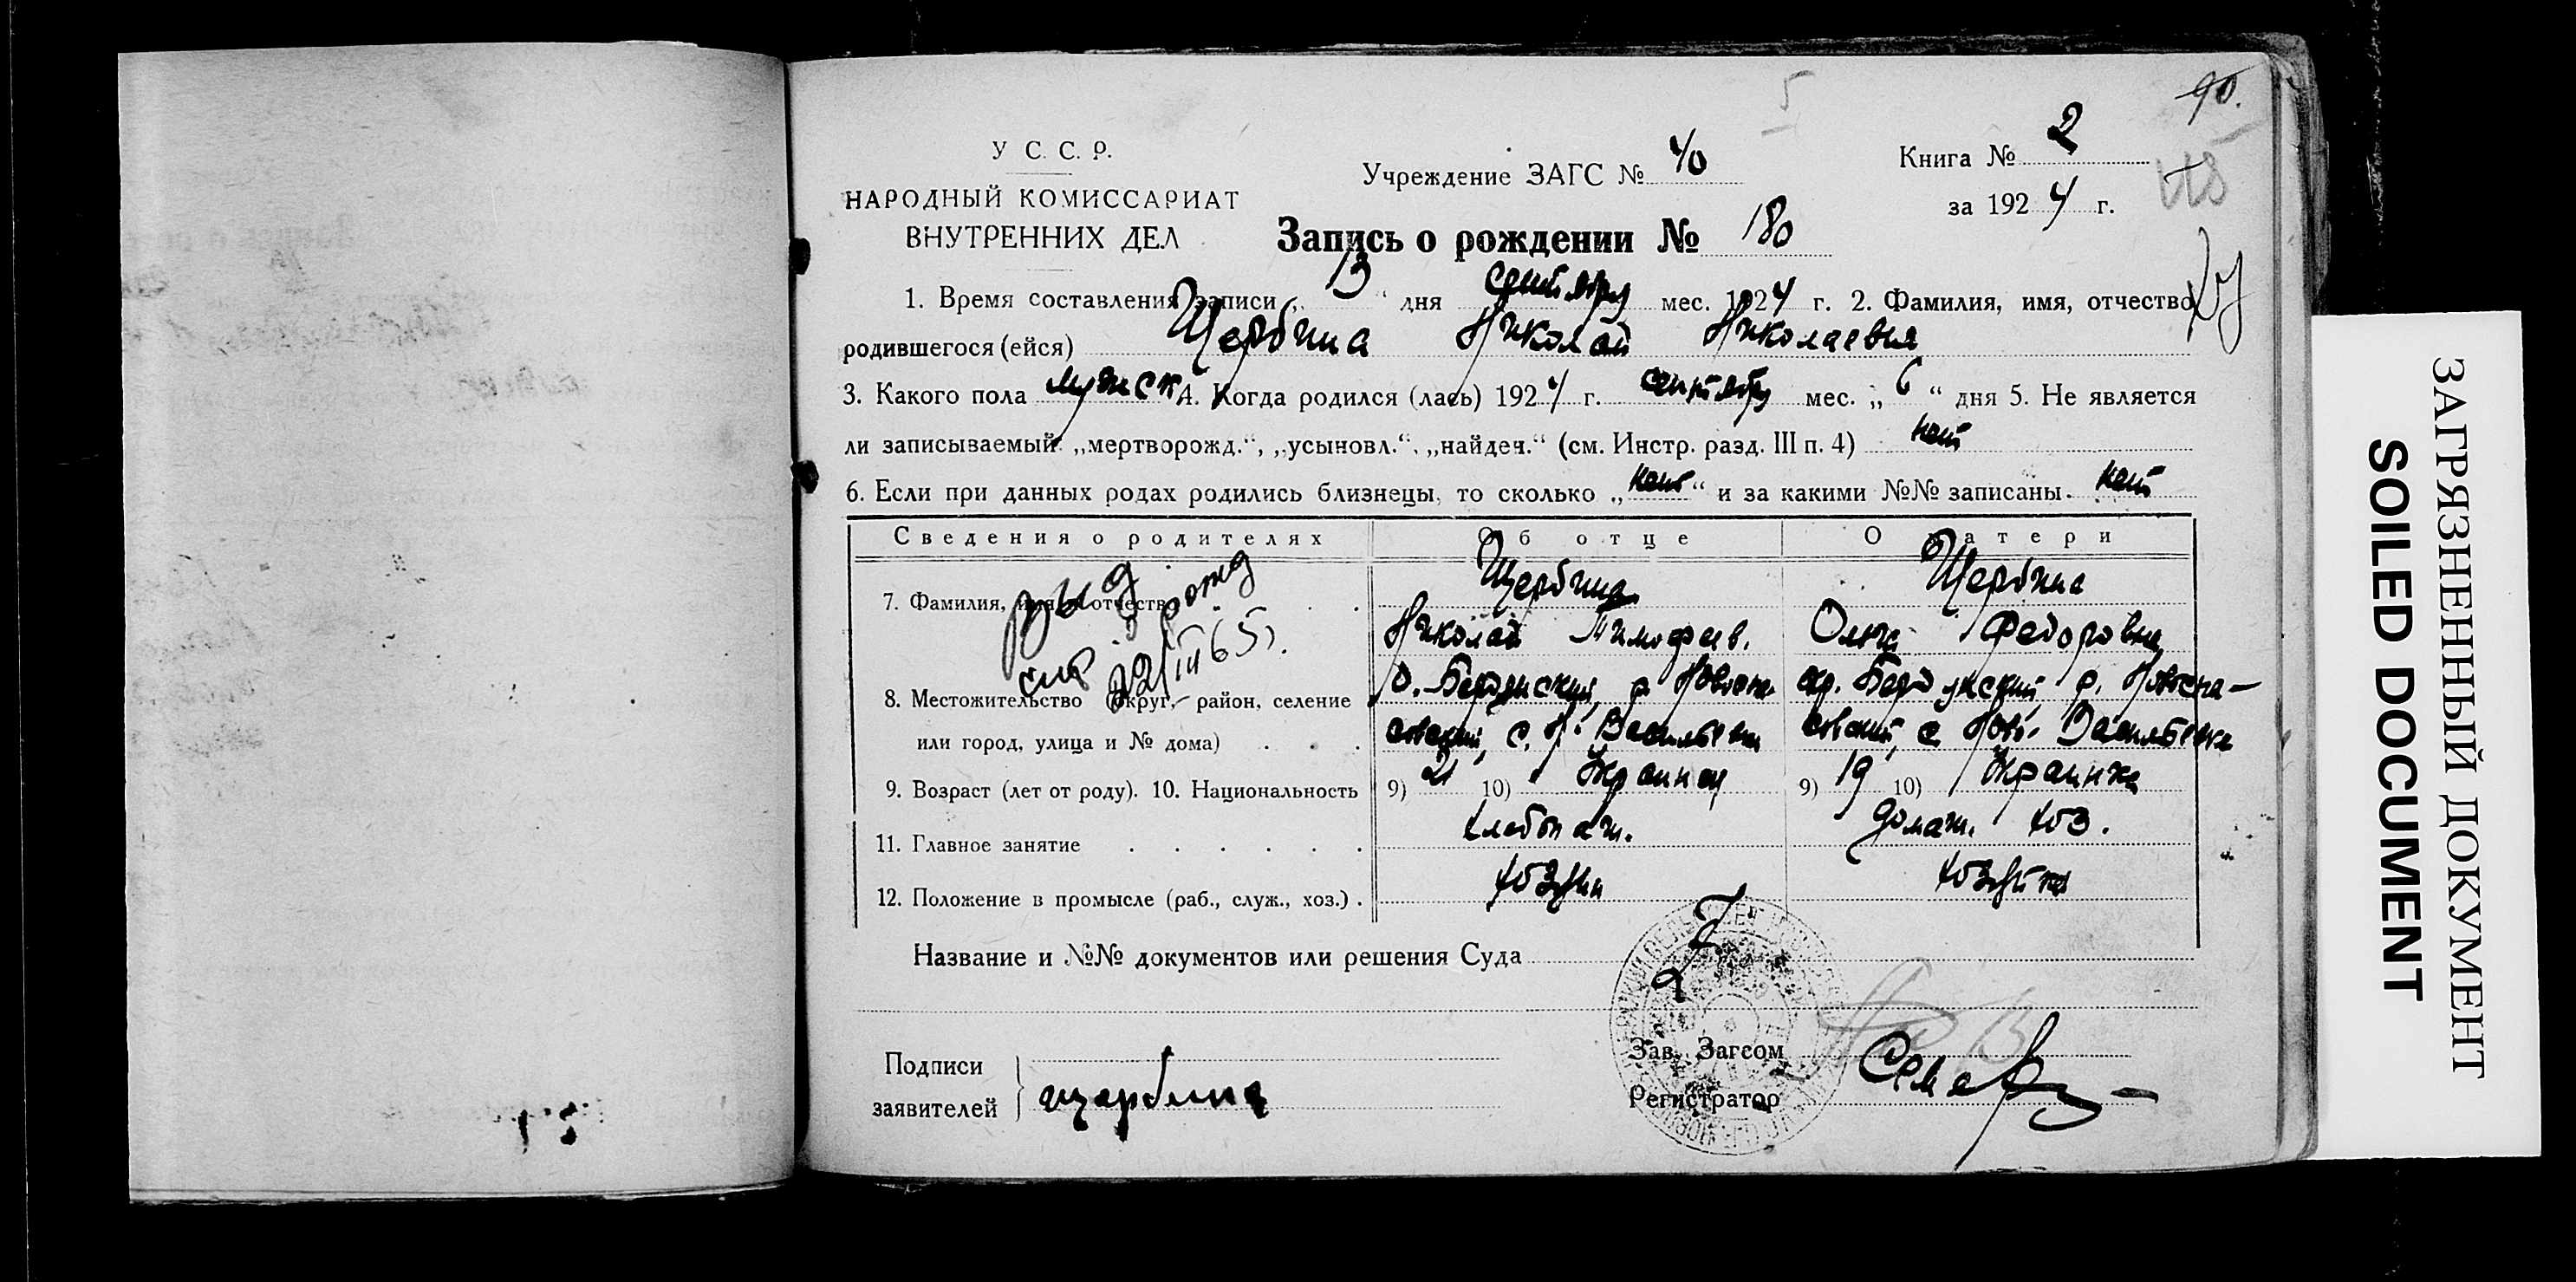 90.
5
У С. С. Р.
НАРОДНЫЙ КОМИССАРИАТ
ВНУТРЕННИХ ДЕЛ
Учреждение ЗАГС № 40
Книга № 2
за 1924 г.
Запись о рождении № 180
1. Время составления записи „ 13 “ дня сентября мес. 1924 г. 2. Фамилия, имя, отчество
родившегося (ейся) Щербина Николай Николаевич
3. Какого пола мужск 4. Когда родился (лась) 1924 г. сентября мес. „ 6 “ дня 5. Не является
ли записываемый „мертворожд.“, „усыновл.“, „найден.“ (см. Инстр. разд. III п. 4) нет
6. Если при данных родах родились близнецы, то сколько „нет“ и за какими №№ записаны. нет
Сведения о родителях Об отце О матери
7. Фамилия, имя, отчество Щербина Щербина
Николай Тимофеев. Федоровна
выд
рожд
22/III 65
8. Местожительство (округ, район, селение о. Бердянский, р. окр. Бердянский, р.
или город, улица и № дома) с. Н. Васильевка с. Ново- Васильевка
9. Возраст (лет от роду). 10. Национальность 9) 21 10) 9) 19 10) Украинка
11. Главное занятие хлебопаш. домаш. хоз.
12. Положение в промысле (раб., служ., хоз.) . хозяин хозяйка
Название и №№ документов или решения Суда
Подписи
заявителей
щербина
Зав. Загсом
Регистратор
ЗАГРЯЗНЕННЫЙ ДОКУМЕНТ
SOILED DOCUMENT